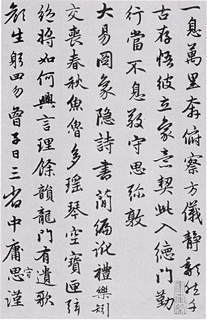 一息萬里奔俯察方儀静頹然千
古存悟彼立象意契此入德門勤
行當不息敬守思彌敦
大易圖象隐詩書簡編訛禮樂矧
交喪春秋魚魯多瑶琴空寶匣弦
絶將如何興言理餘韻龍門有遺歌
顔生躬四勿曾子日三省中庸思谨